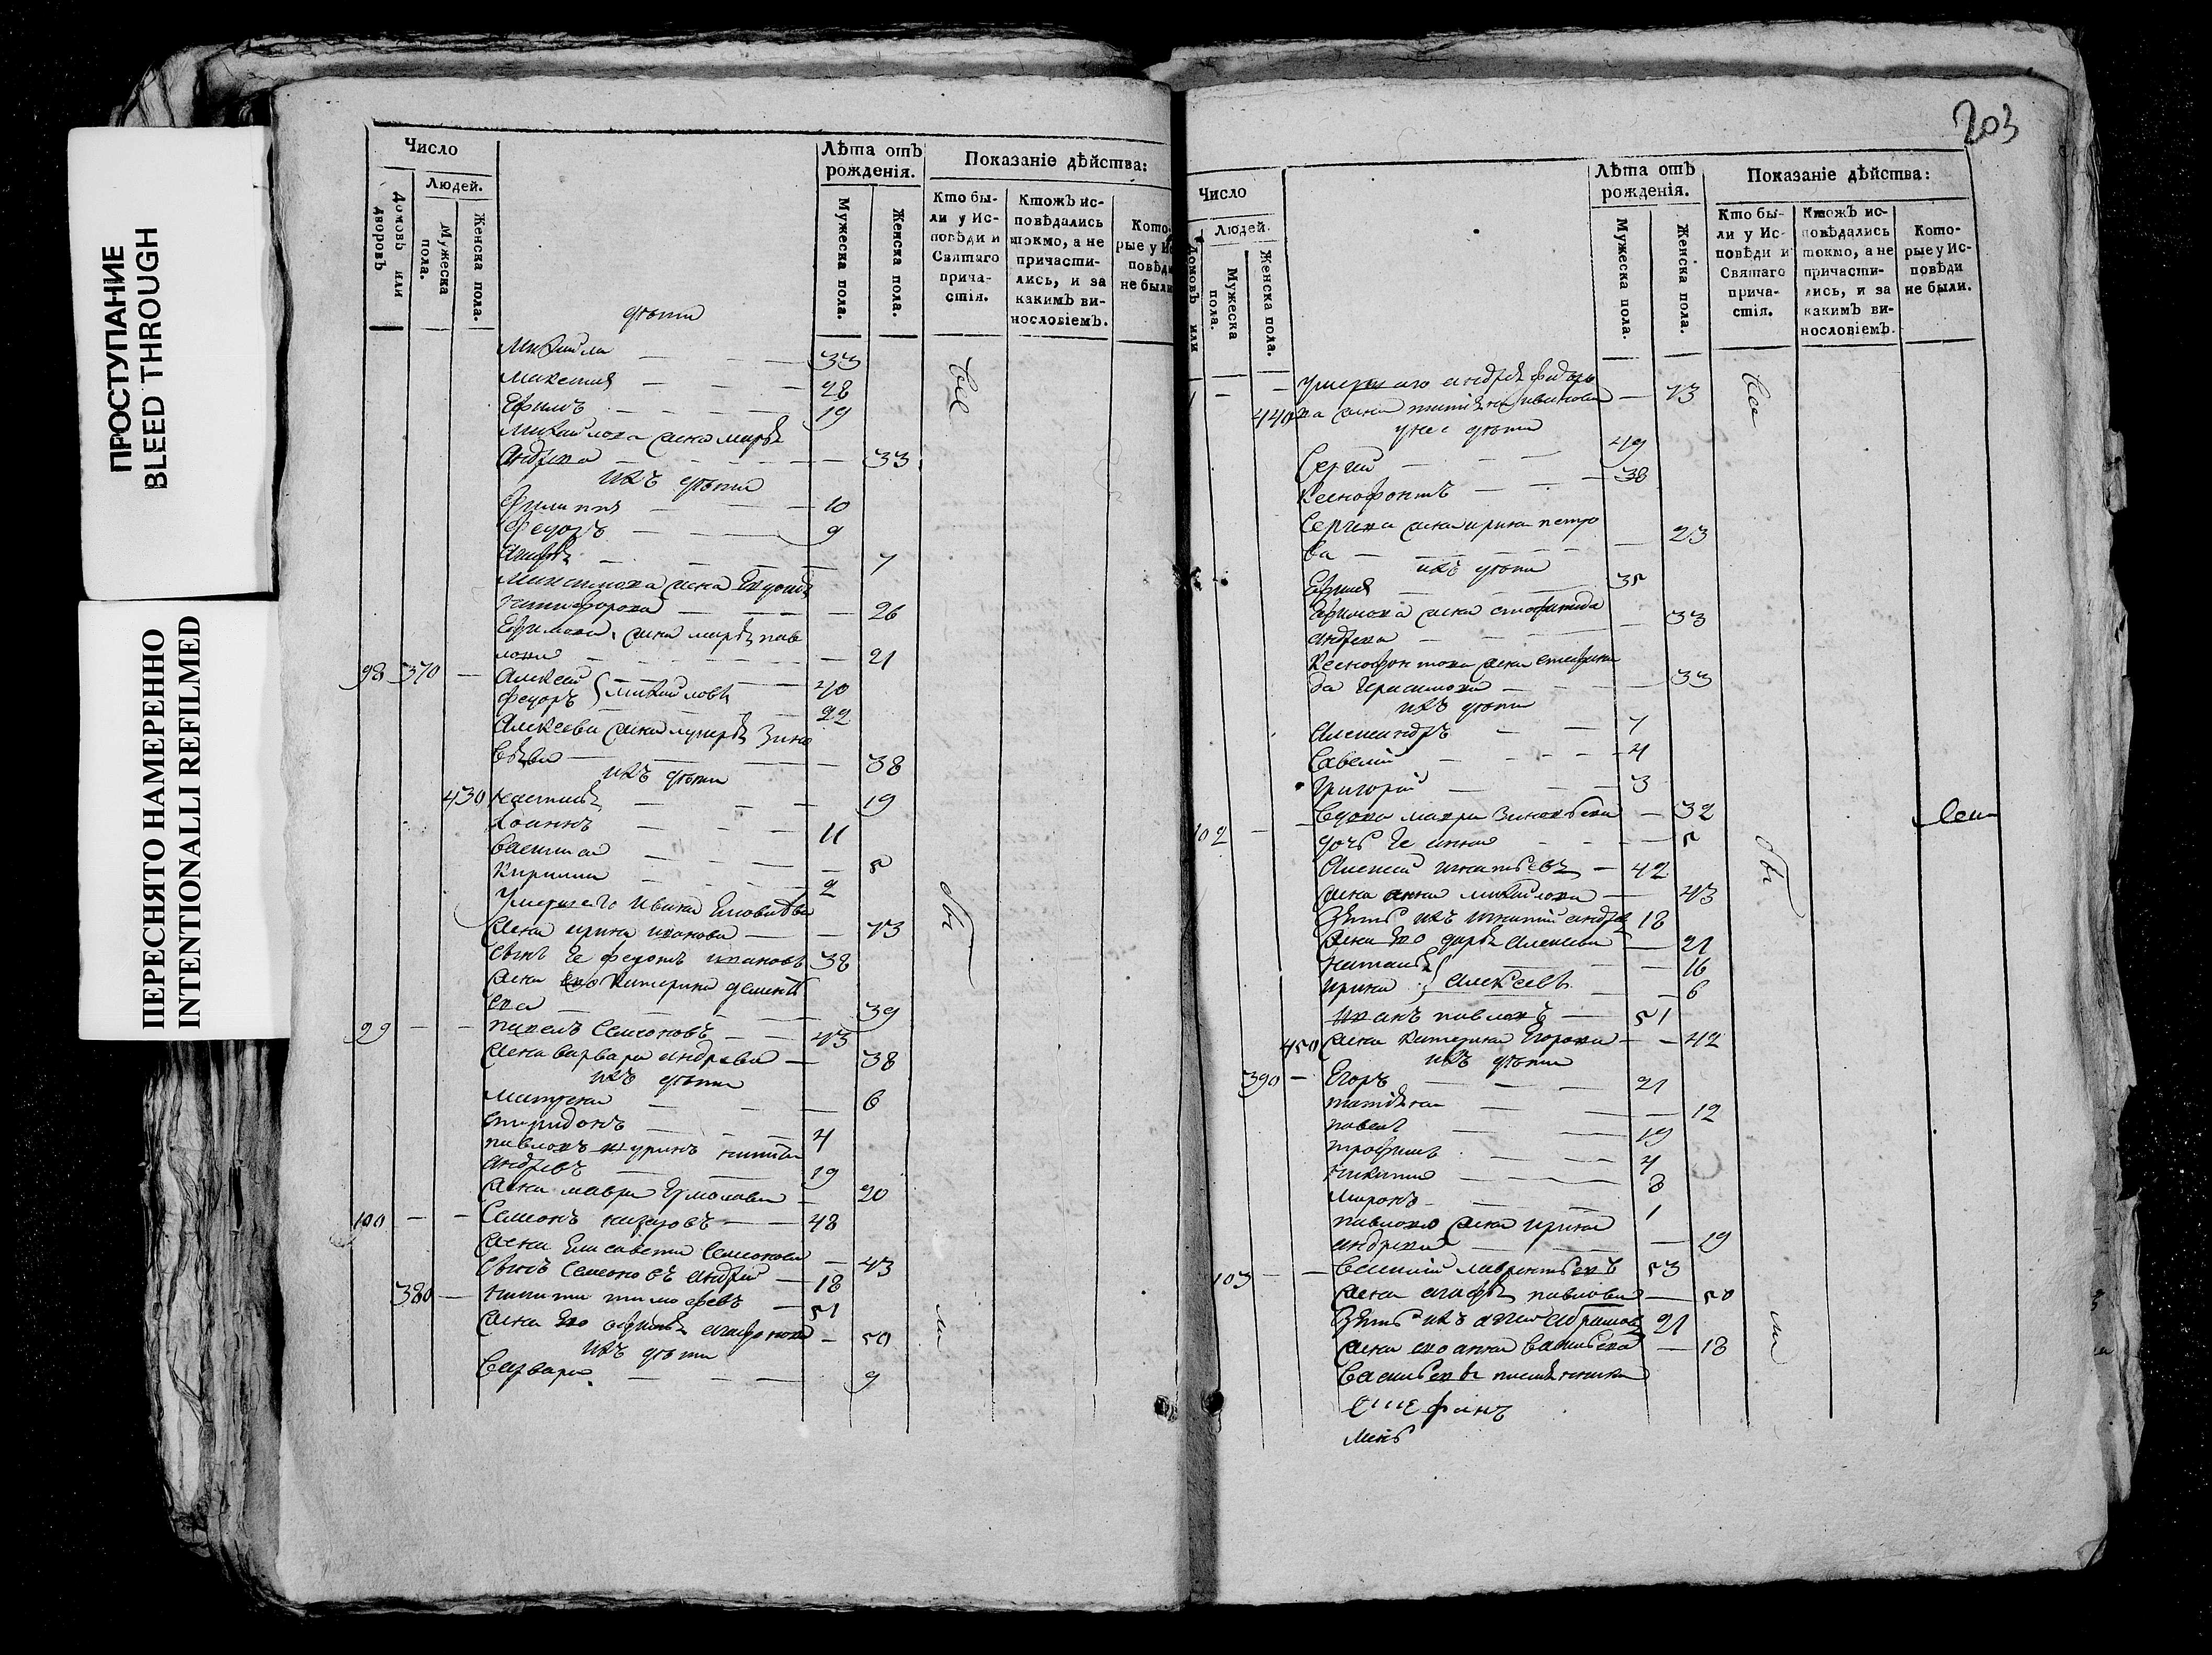 ПРОСТУПАНИЕ
BLEED THROUGH
ПЕРЕСНЯТО НАМЕРЕННО
INTENTIONALLI REFILMED
Число
Людей.
Домовъ или дворовъ
Мужеска пола.
Женска пола.
Лѣта отъ рожденія.
Мужеска пола.
Женска пола.
Показаніе дѣйства:
Кто бы-
ли у Ис-
повѣди и
Святаго
прича-
стія.
Ктожъ ис-
повѣдались
токмо, а не
причасти-
лись, и за
какимъ ви-
нословіемъ.
Кото-
рые у Ис
повѣди
не были
дѣти
Михайла — 33
Максимъ — 28
Ефимъ — 19
Михайлова жена марѳа
Андреева — 33
ихъ дѣти
Филиппъ — 10
Федоръ — 9
— 7
Максимова жена Евдокия
Никифорова — 26
Ефимова жена марѳа пав
лова — 21
98 370 — Алексей 40
Федоръ } михайловы 22
Алексеева жена лукерья Зино
вьева — 38
ихъ дѣти
430 Настасья — 19
Иоаннъ — 11
Василиса — 5
Кирилла — 2
Умершего Ивана
жена ирина иванова — 73
сынъ Ее федотъ ивановъ 38
жена его Катерина дементь
ева — 39
99 — — павелъ Семеновъ — 43
жена варвара андреева — 38
ихъ дѣти
Матрена — 6
Спиридонъ — 4
павловъ шуринъ никита
андреевъ — 19
жена мавра Ермолаева — 20
100 — — Семенъ — 48
жена Елисавета Семенова — 43
сынъ Семеновъ андрей — 18
380 — никита тимофеевъ — 51
жена его агафонова — 50
ихъ дѣти
Варвара — 9
Все
овѣ
ли
203
Число
Людей.
Домовъ или
Мужеска пола.
Женска пола.
Лѣта отъ рожденія.
Мужеска пола.
Женска пола.
Показаніе дѣйства:
Кто бы-
ли у Ис-
повѣди и
Святаго
прича-
стія.
Ктожъ ис-
повѣдались
токмо, а не
причасти-
лись, и за
какимъ ви-
нословіемъ.
Кото-
рые у Ис-
повѣди
не были.
умершаго андрея федоро
440 ва жена татьяна иванова — 73
у нее дѣти
Сергий — 49
Ксенофонтъ — 38
Сергиева жена ирина петро
ва — 23
ихъ дѣти
Ефимъ — 35
Ефимова жена степанида
андреева — 33
Ксенофонтова жена степани
да Герасимова — 33
ихъ дѣти
Александръ — 7
Савелий — 4
Григорий — 3
Вдова мавра Зиновьева — 32
дочь Ее анна — 5
102 Алексей игнатьевъ — 42
жена анна михайлова — 43
Зять ихъ игнатий андреевъ 18
жена его дарья Алексеева — 21
наталья — 16
ирина } Алексеевы — 6
Иванъ павловъ — 51
450 жена Катерина Егорова — 42
ихъ дѣти
390 — Егоръ — 21
татьяна — 12
павелъ — 19
трофимъ — 4
никита — 8
миронъ — 1
павлова жена ирина
андреева — 29
103 — — Василий лаврентьевъ 53
жена агафья павлова — 50
Зять ихъ 21
жена его анна васильева — 18
Васильевы племянники
Стефанъ
Все
овѣ
ли